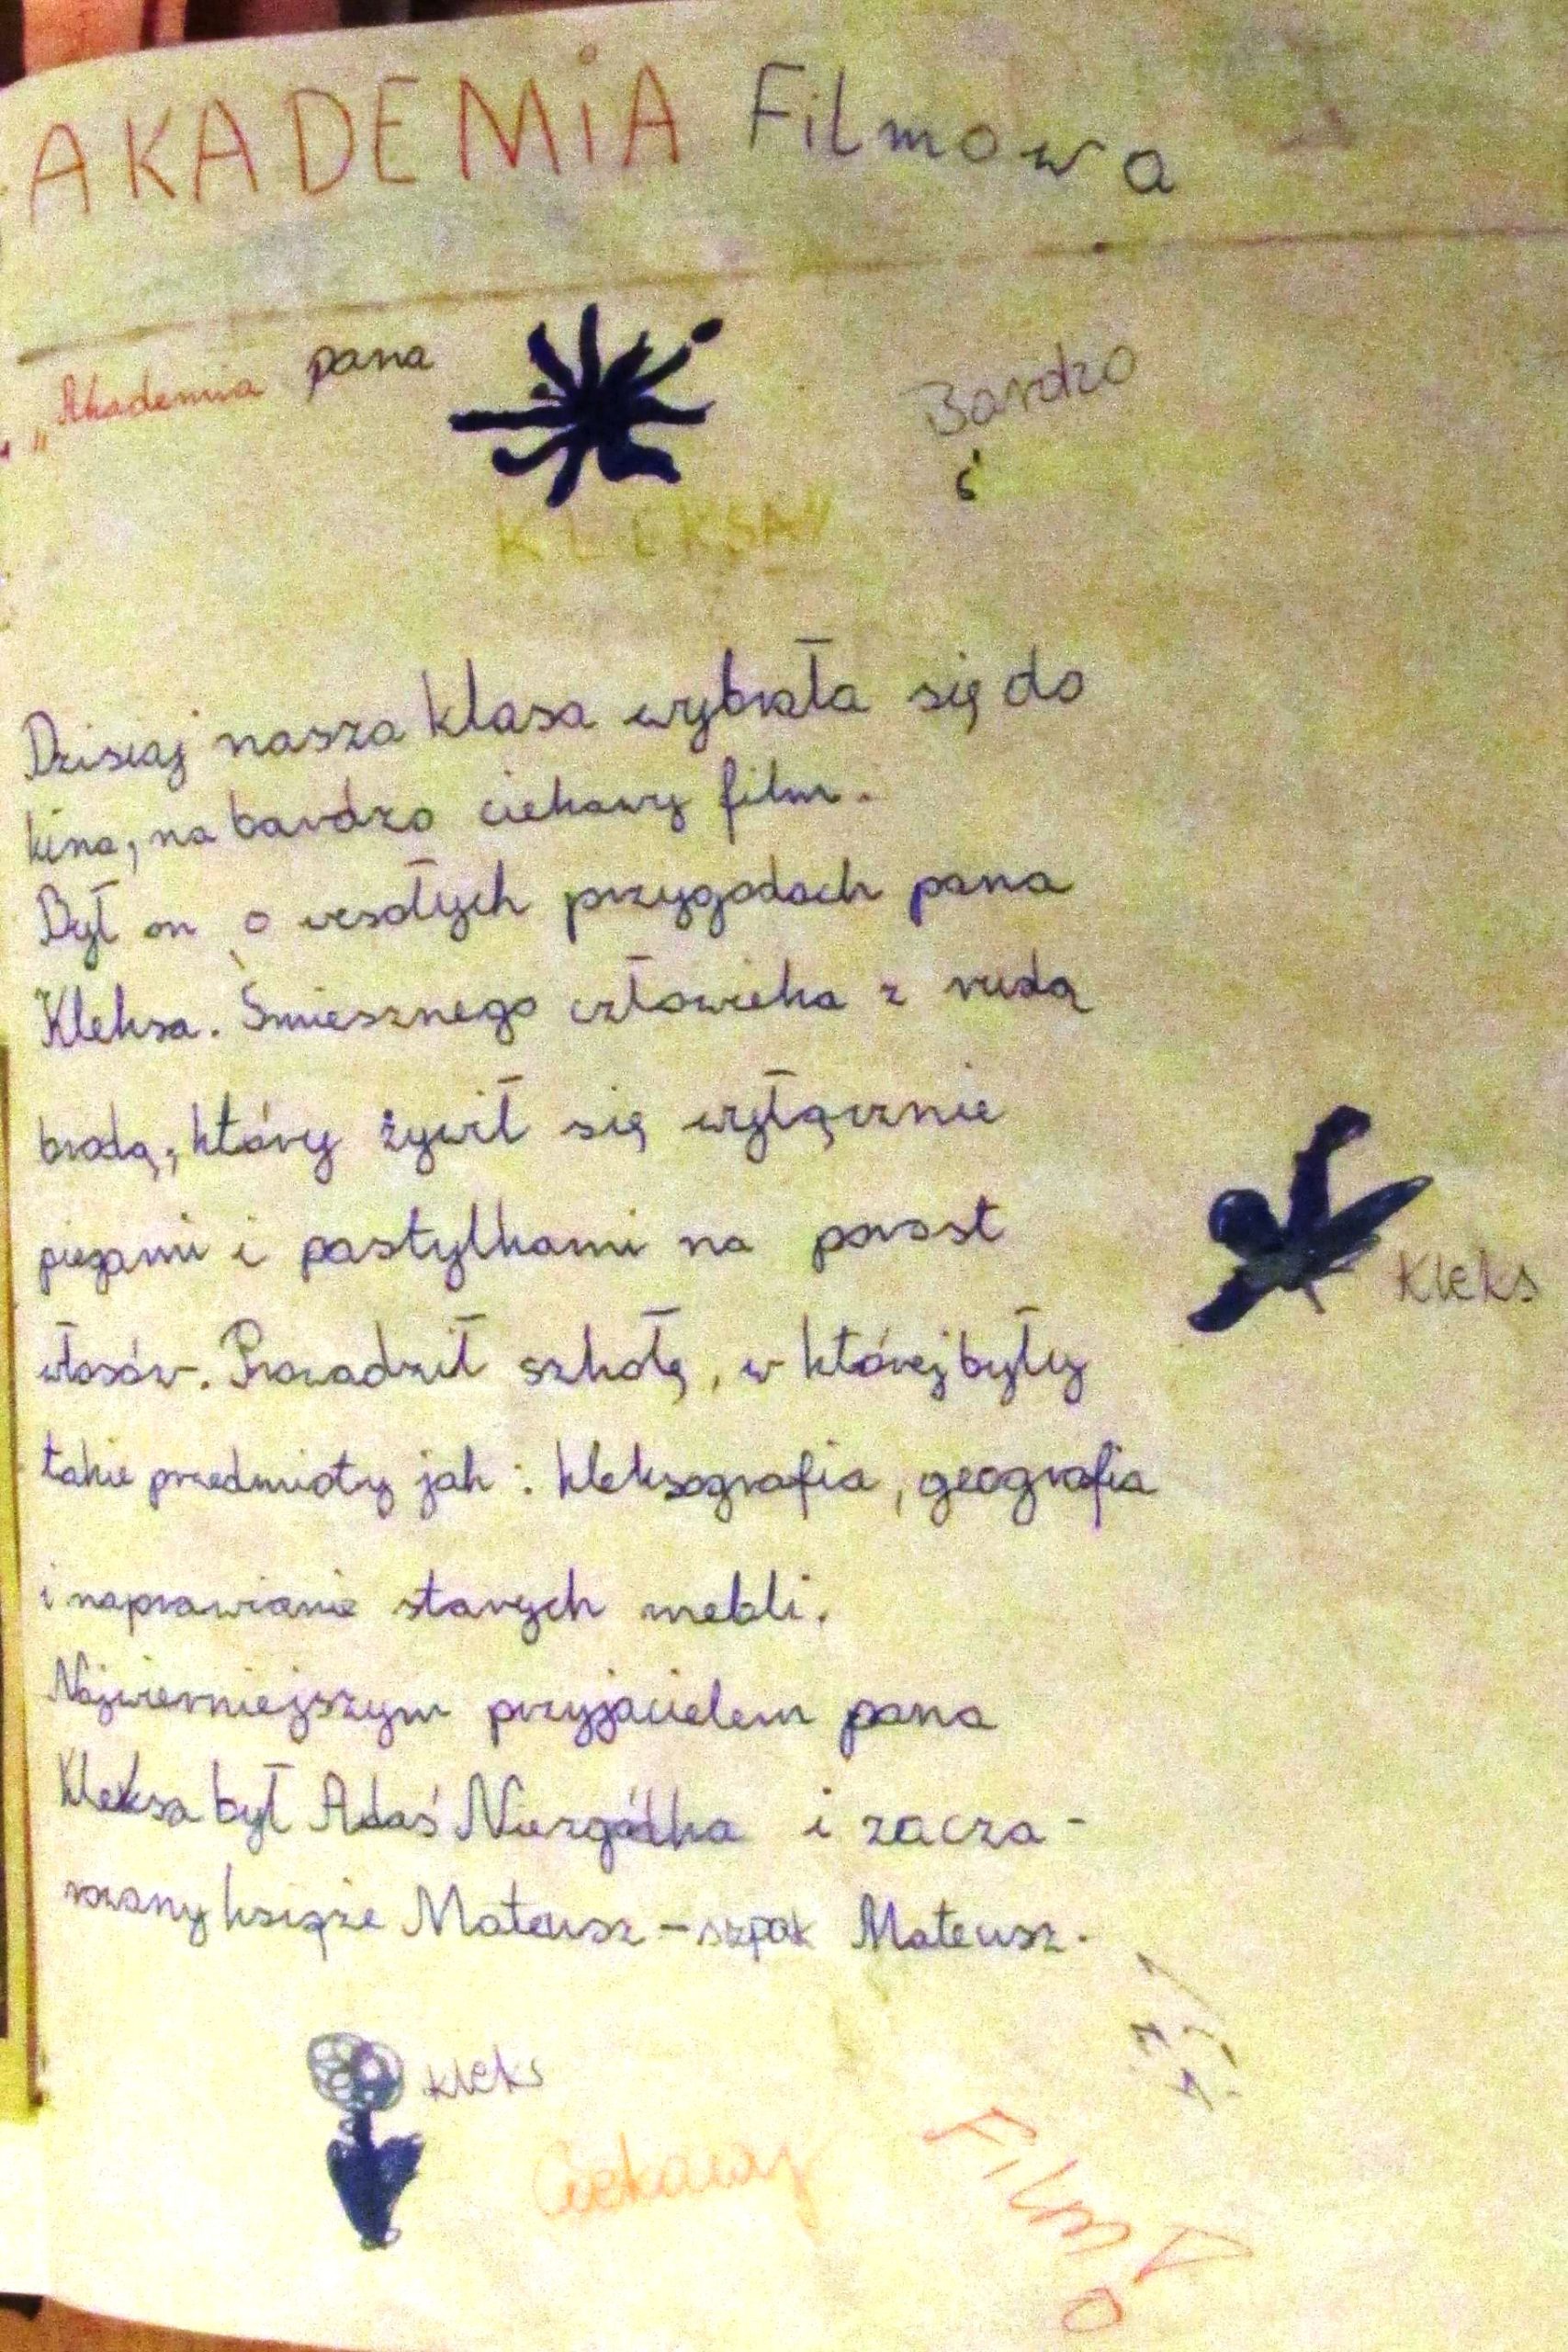 AKADEMiA Filmowa
„Akademia pana
KLEKSA"
Bardzo
Dzisiaj nasza klasa wybrała się do
kina, na bardzo ciekawy film.
Był on o wesołych przygodach pana
Kleksa. Śmiesznego człowieka z rudą
brodą, który żywił się wyłącznie
piegami i pastylkami na porost
włosów. Prowadził szkołę, w której były
takie przedmioty jak: kleksografia, geografia
Kleks
i naprawianie starych mebli.
Najwierniejszym przyjacielem pana
Kleksa był Adaś Niezgódka i zacza-
rowany książe Mateusz - szpak Mateusz.
kleks
Ciekawy
Film